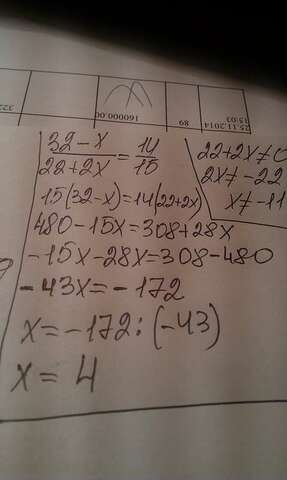 25.11.2014
15:03
89
160000.00
322
32-x/22+2x=14/15
22+2x≠0
2x≠-22
x≠-11
15(32-x)=14(22+2x)
480-15x=308+28x
-15x-28x=308-480
-43x=-172
x=-172:(-43)
x=4